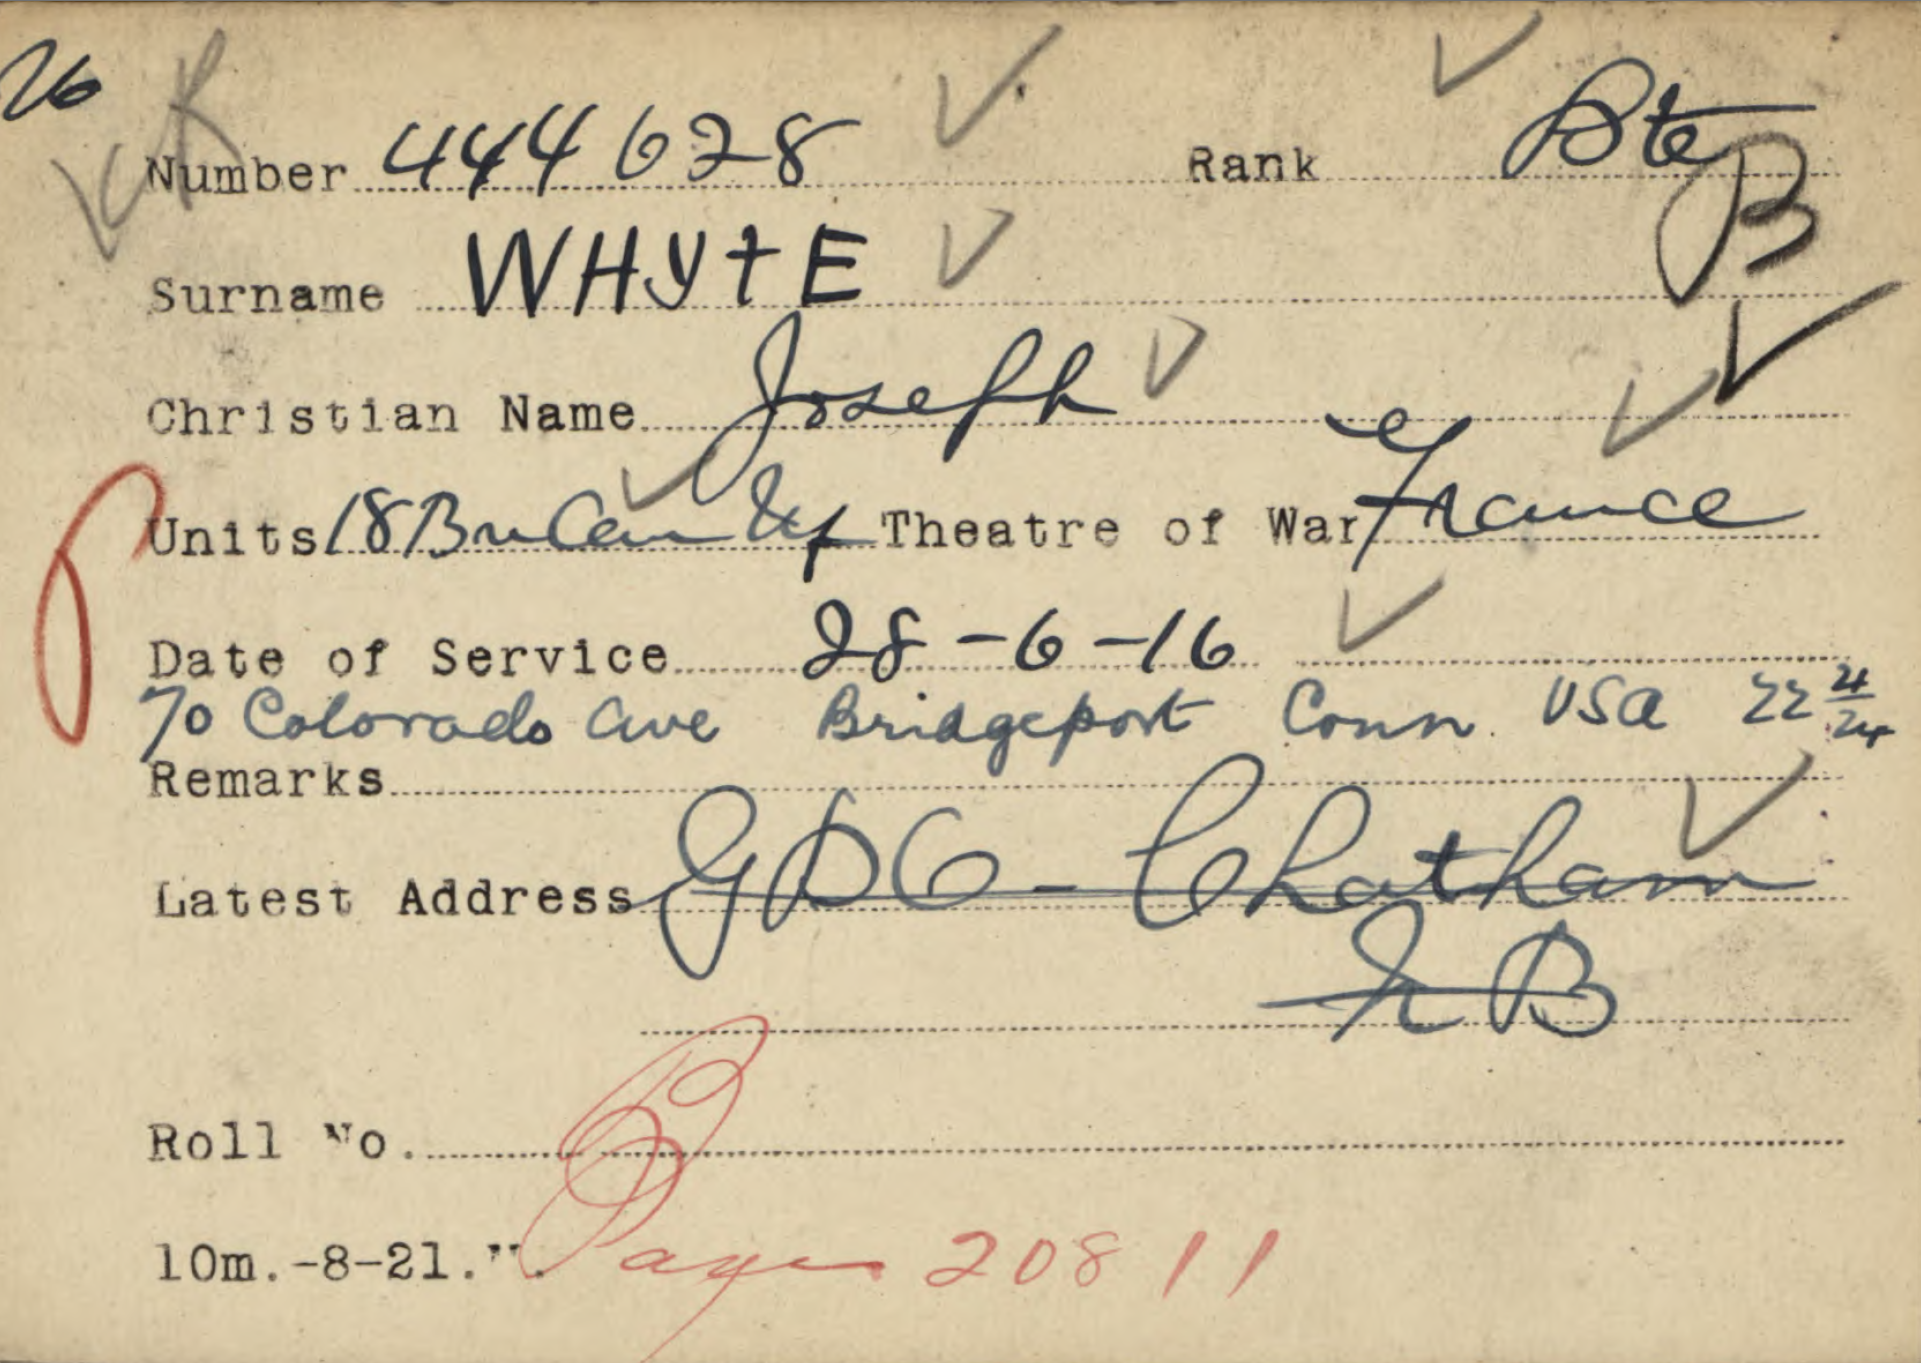 26 K
Number 444628 Rank Pte
B
Surname WHYTE
Christian Name Joseph
Units 18 Bn Can Inf Theatre of War France
Date of Service 28-6-16
70 Colorado Ave Bridgeport Conn. USA 22 4/24
Remarks
Latest Address GDC - Chatham
NB
Roll No.
10m.-8-21.
Page 20811